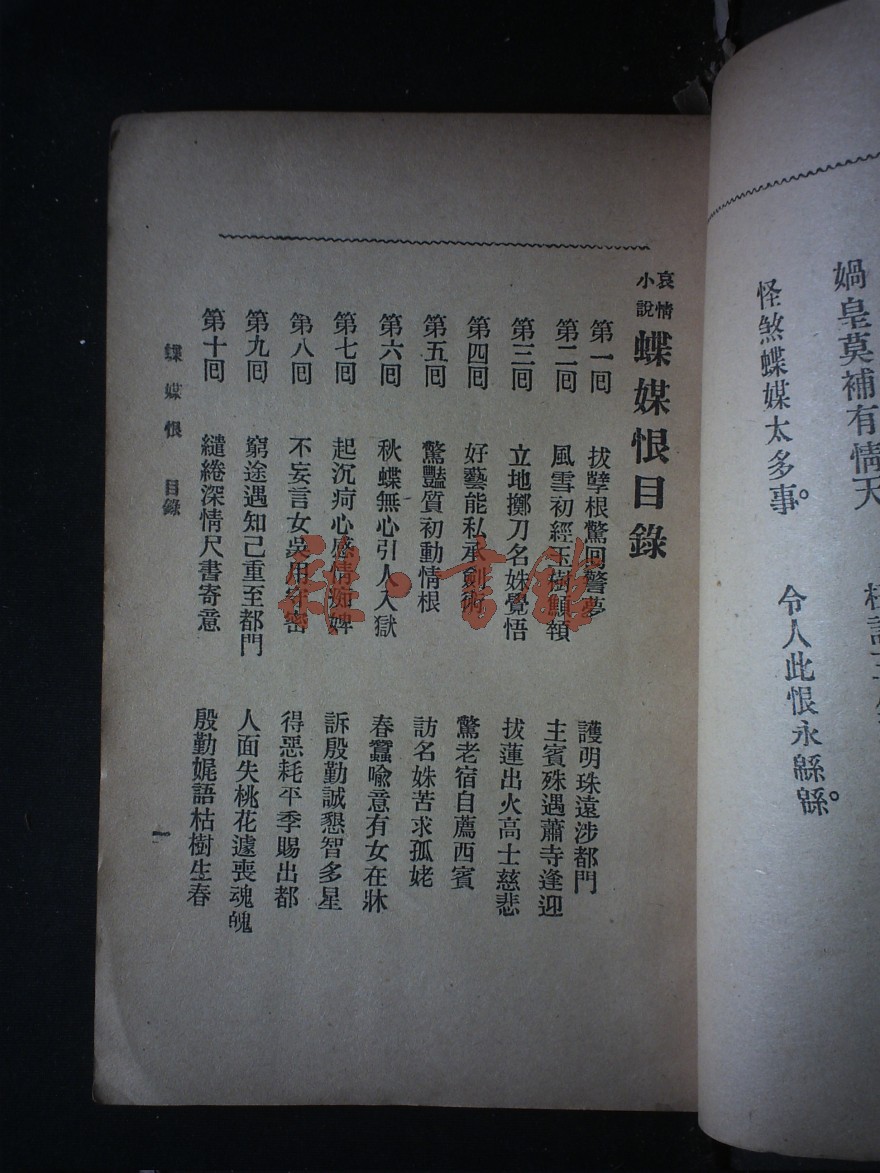 媧皇莫補有情天
怪煞蝶媒太多事。 令人此恨永緜緜。
哀情小說 蝶媒恨目錄
第一回 拔孽根驚回警夢 護明珠遠涉都門
第二回 風雪初經玉樹顦顇 主賓殊遇蕭寺逢迎
第三回 立地擲刀名姝覺悟 拔蓮出火高士慈悲
第四回 好藝能私承劍術 驚老宿自薦西賓
第五回 驚豔質初動情根 訪名姝苦求孤姥
第六回 秋蝶無心引人入獄 春蠶喩意有女在牀
第七回 起沉疴心感情痴婢 訴殷勤誠懇智多星
第八回 不妄言女吳用守密 得惡耗平季賜出都
第九回 窮途遇知己重至都門 人面失桃花遽喪魂魄
第十回 繾綣深情尺書寄意 殷勤娓語枯樹生春
蝶媒恨 目錄 一
雜·書館